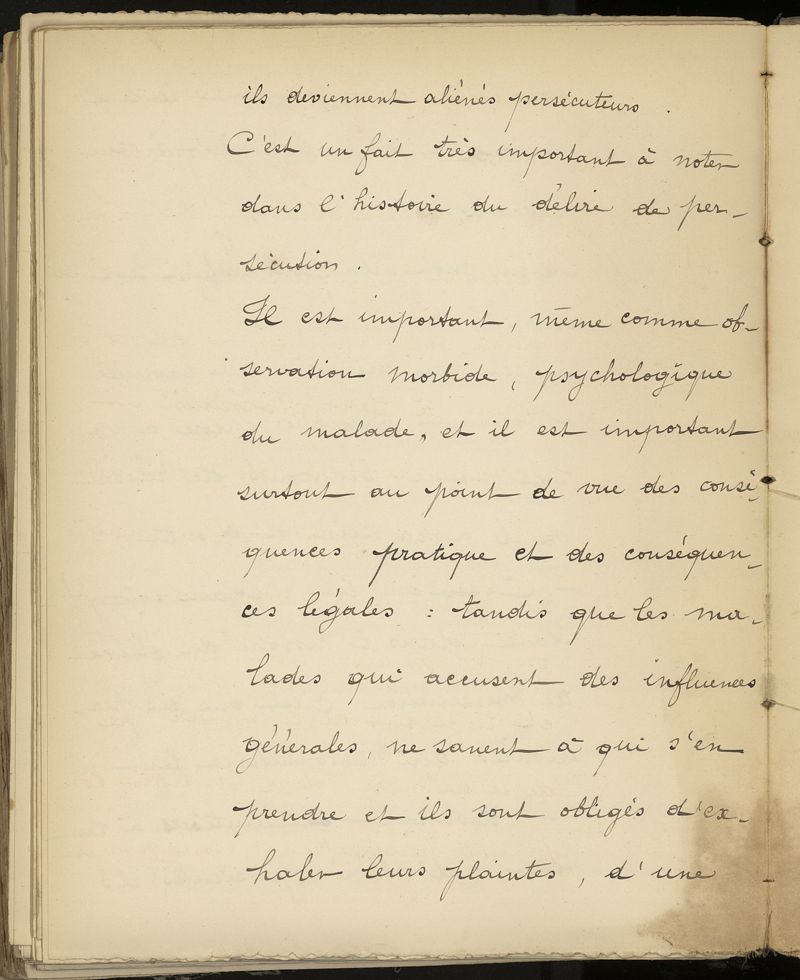 ils deviennent aliénés persécuteurs.
C'est un fait très important à noter
dans l'histoire du délire de per-
sécution.
Il est important, même comme ob-
servation morbide, psychologique
du malade, et il est important
surtout au point de vue des consé-
quences pratique et des conséquen-
ces légales : tandis que les ma-
lades qui accusent des influences
générales, ne savent à qui s'en
prendre et ils sont obligés d'ex-
haler leurs plaintes, d'une